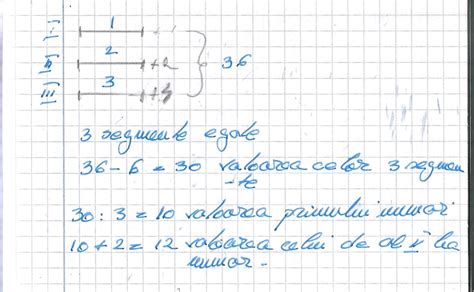 |I| 1
|II| 2 +2 36
|III| 3
3 segmente egale
36 - 6 = 30 valoarea celor 3 segmen
-te
30 : 3 = 10 valoarea primului numar
10 + 2 = 12 valoarea celui de al II lea
numar -